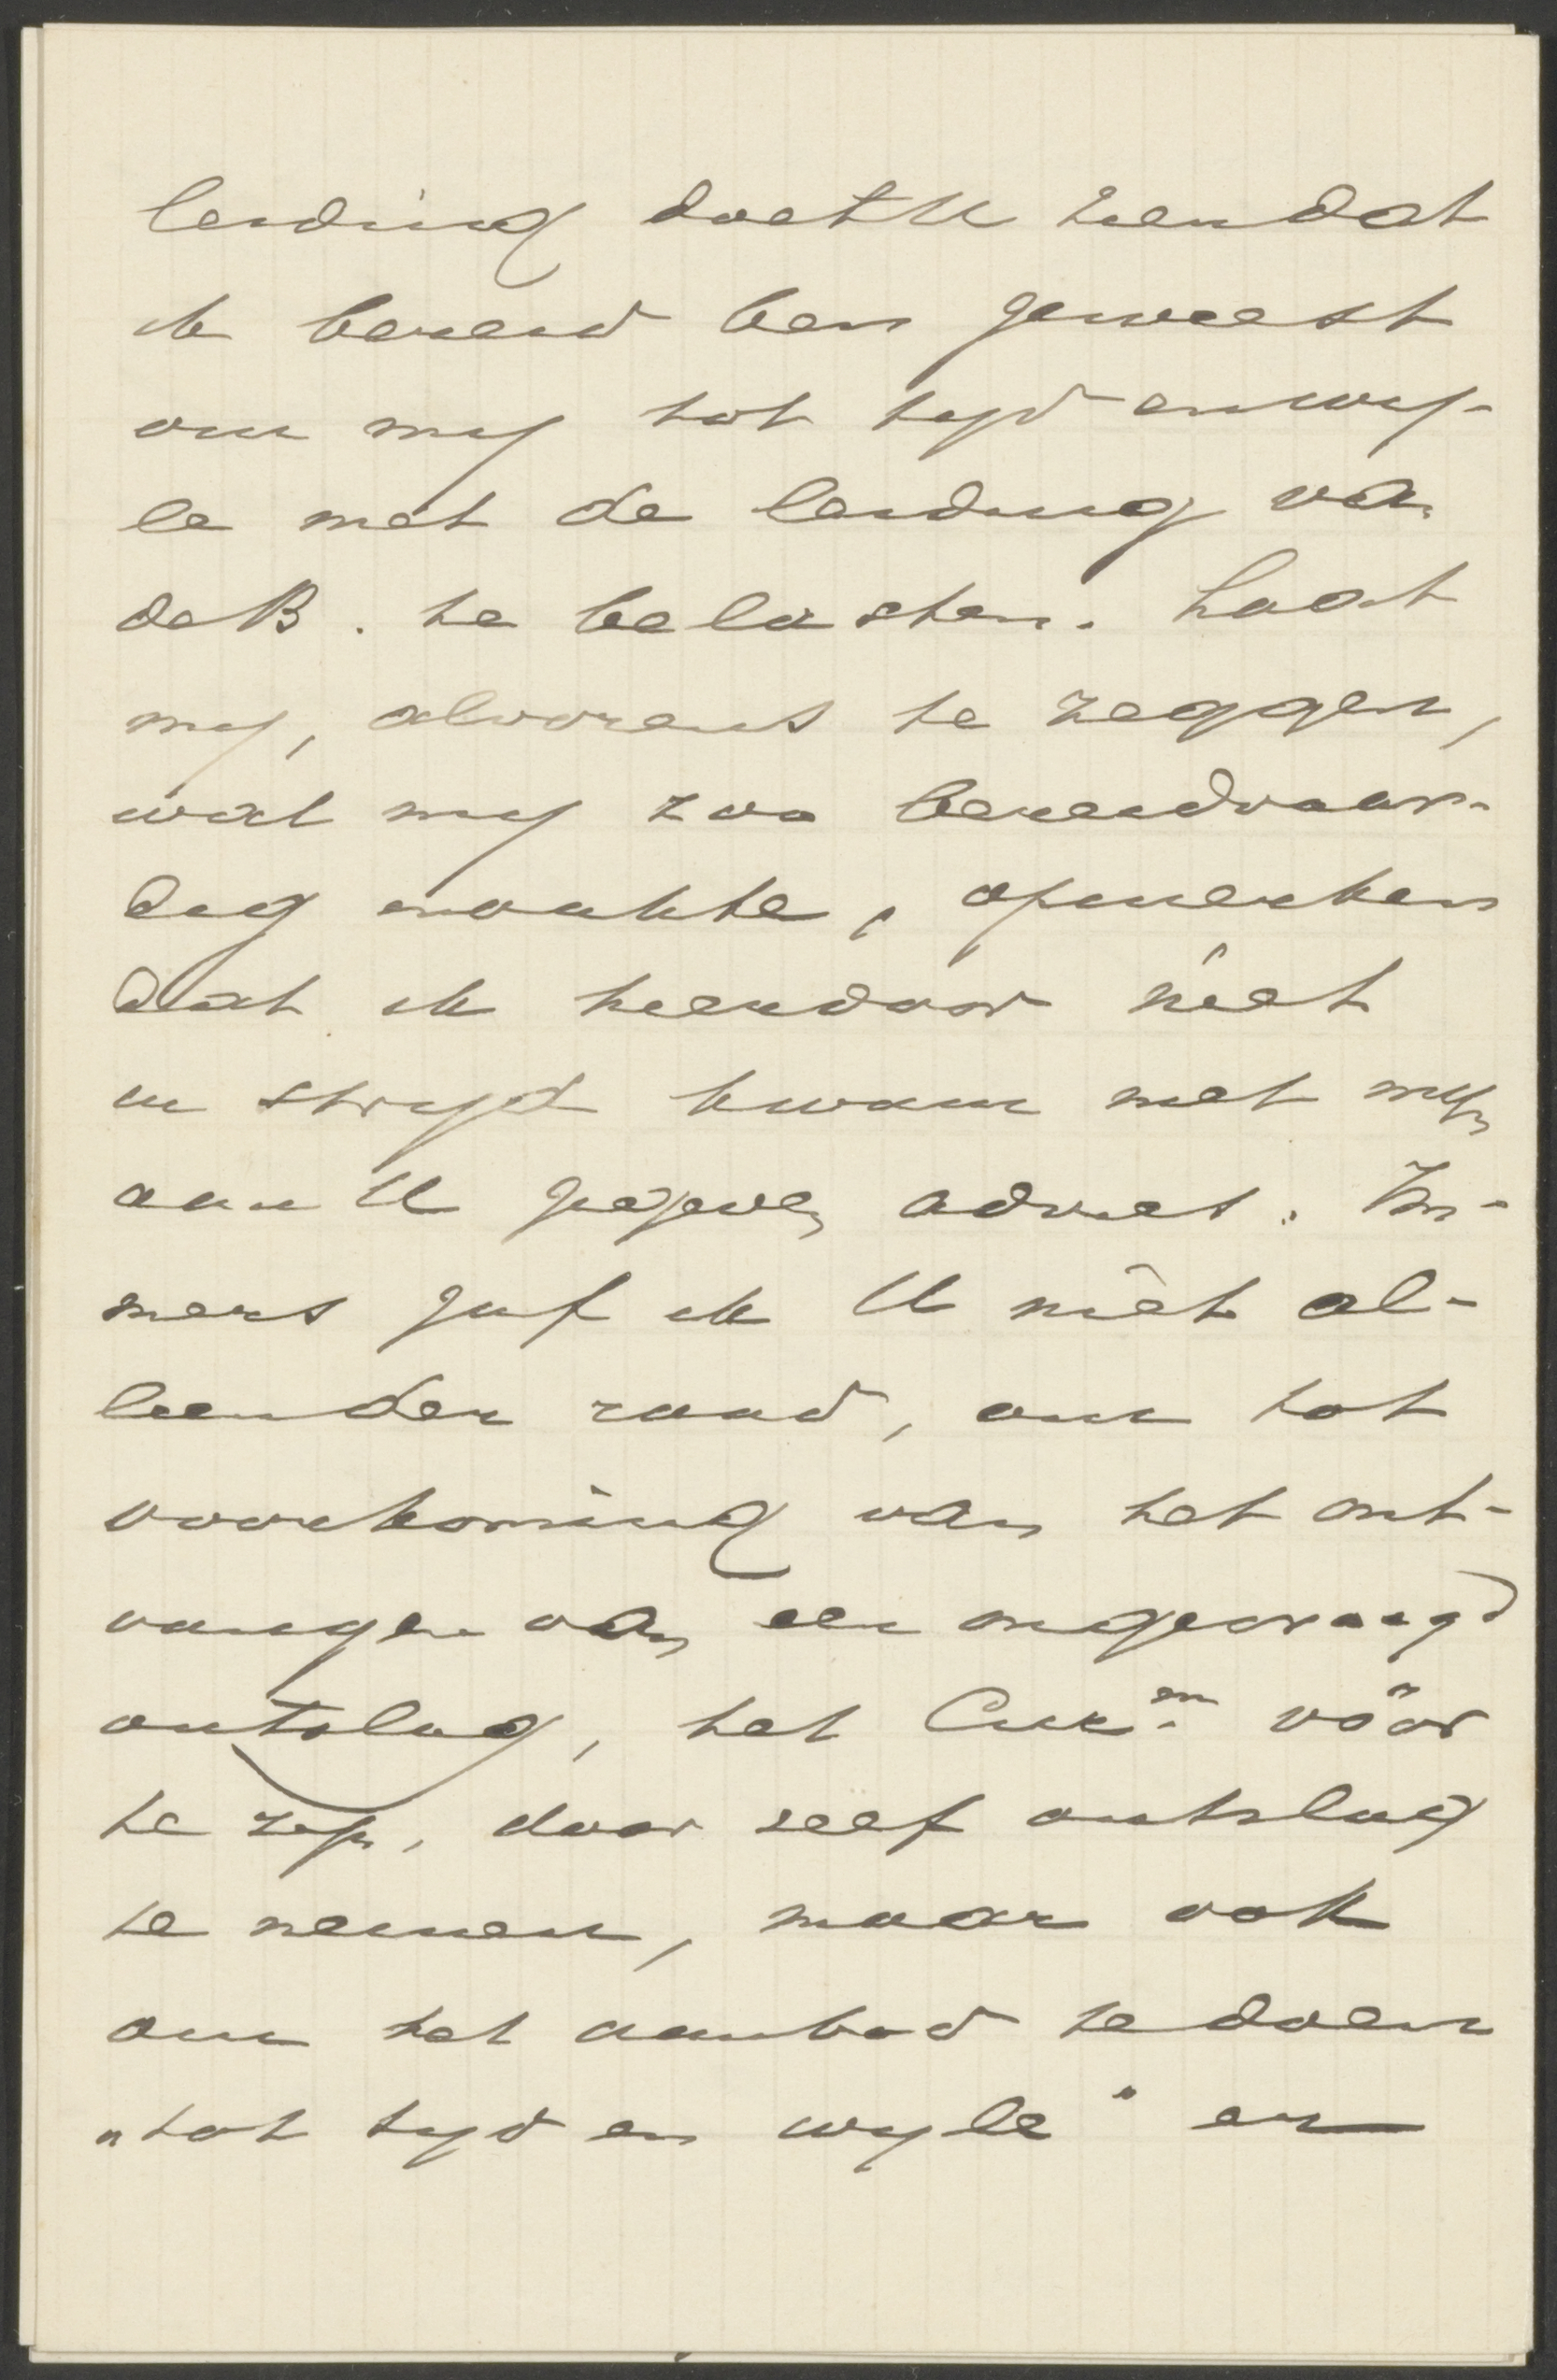 leiding doet U zien dat
ik bereid ben geweest
om mij tot tijd en wij-
le met de leiding van
de B. te belasten. Laat
mij, alvorens te zeggen,
wat mij zoo bereidvaar-
dig maakte, opmerken
dat ik hierdoor niet
in strijd kwam met mijn
aan U gegeven advies. Im-
mers gaf ik U niet al-
leen den raad, om tot
voorkoming van het ont-
vangen van een ongevraagd
ontslag, het Cur.m vóór
te zijn, door zelf ontslag
te nemen, maar ook
om het aanbod te doen
"tot tijd en wijle" en